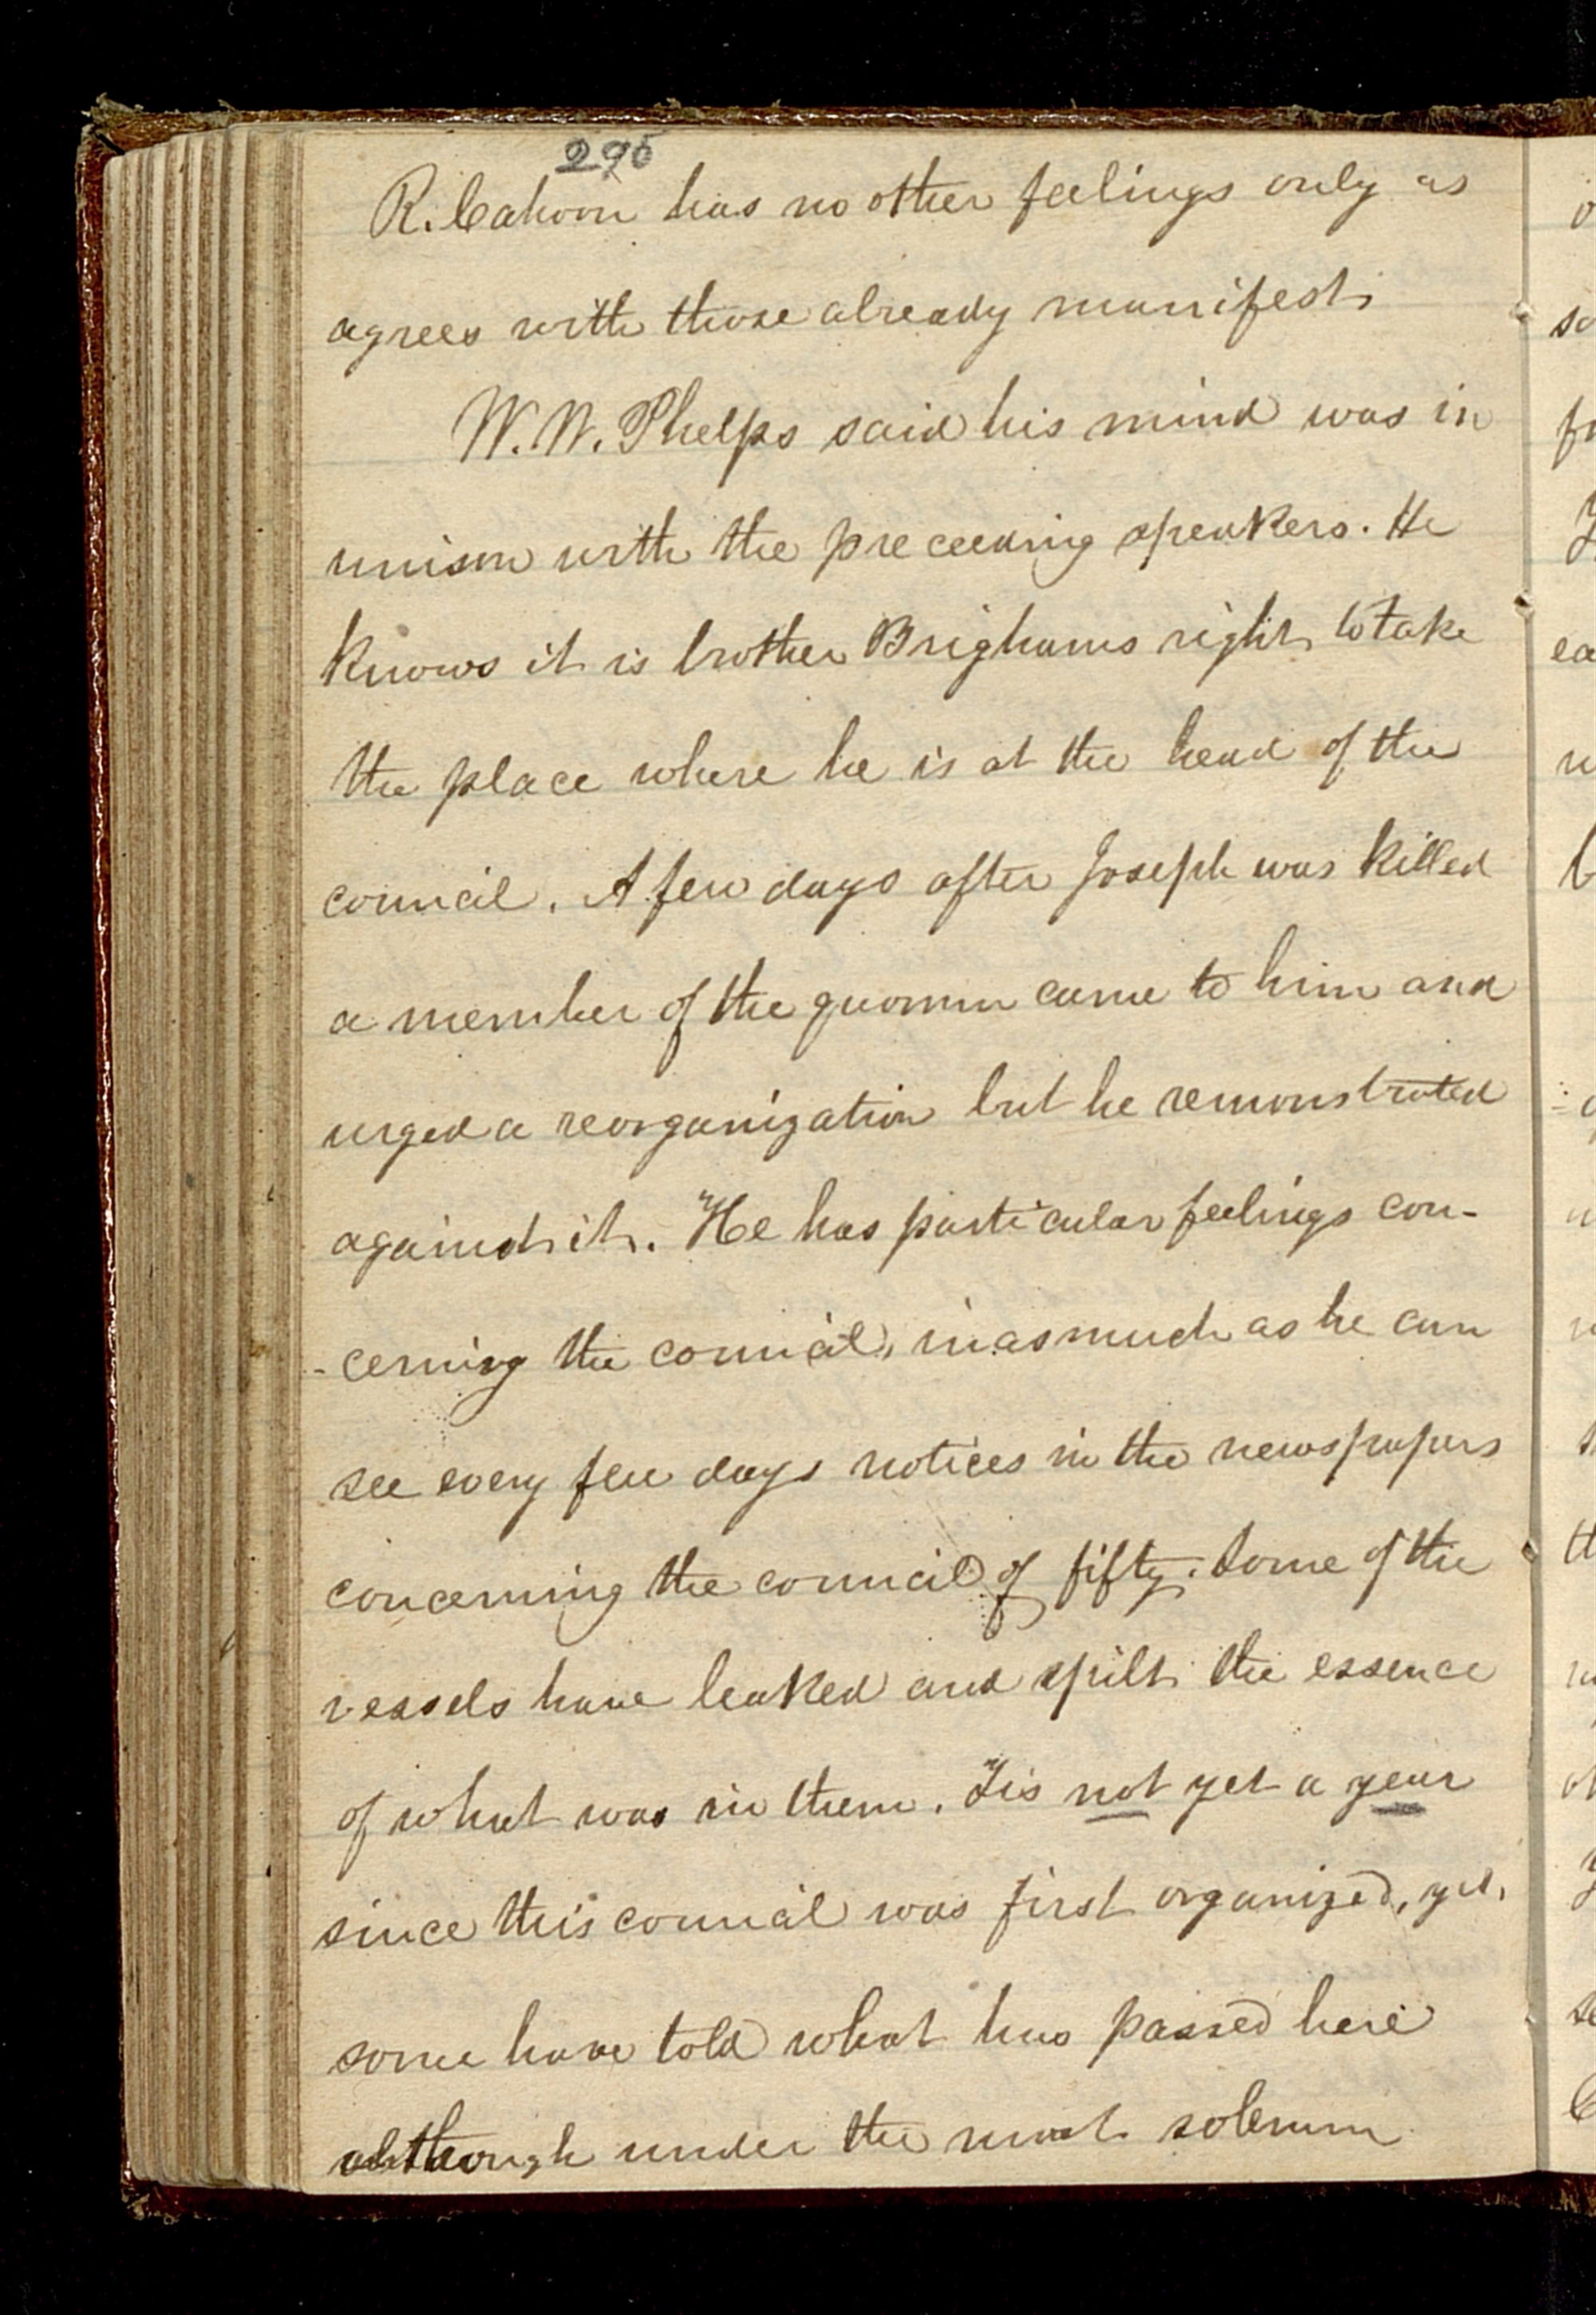 295
R. Cahoon has no other feelings only as
agrees with those already manifest
W. W. Phelps said his mind was in
unison with the preceeding speakers. He
knows it is brother Brighams right to take
the place where he is at the head of the
council. A few days after Joseph was killed
a member of the quorum came to him and
urged a reorganization but he remonstrated
against it. He has particular feelings con-
-cerning the council, inasmuch as he can
see every few days notices in the newspapers
concerning the council of fifty. Some of the
vessels have leaked and spilt the essence
of what was in them. Tis not yet a year
since this council was first organized, yet,
some have told what has passed here
although under the most solemn